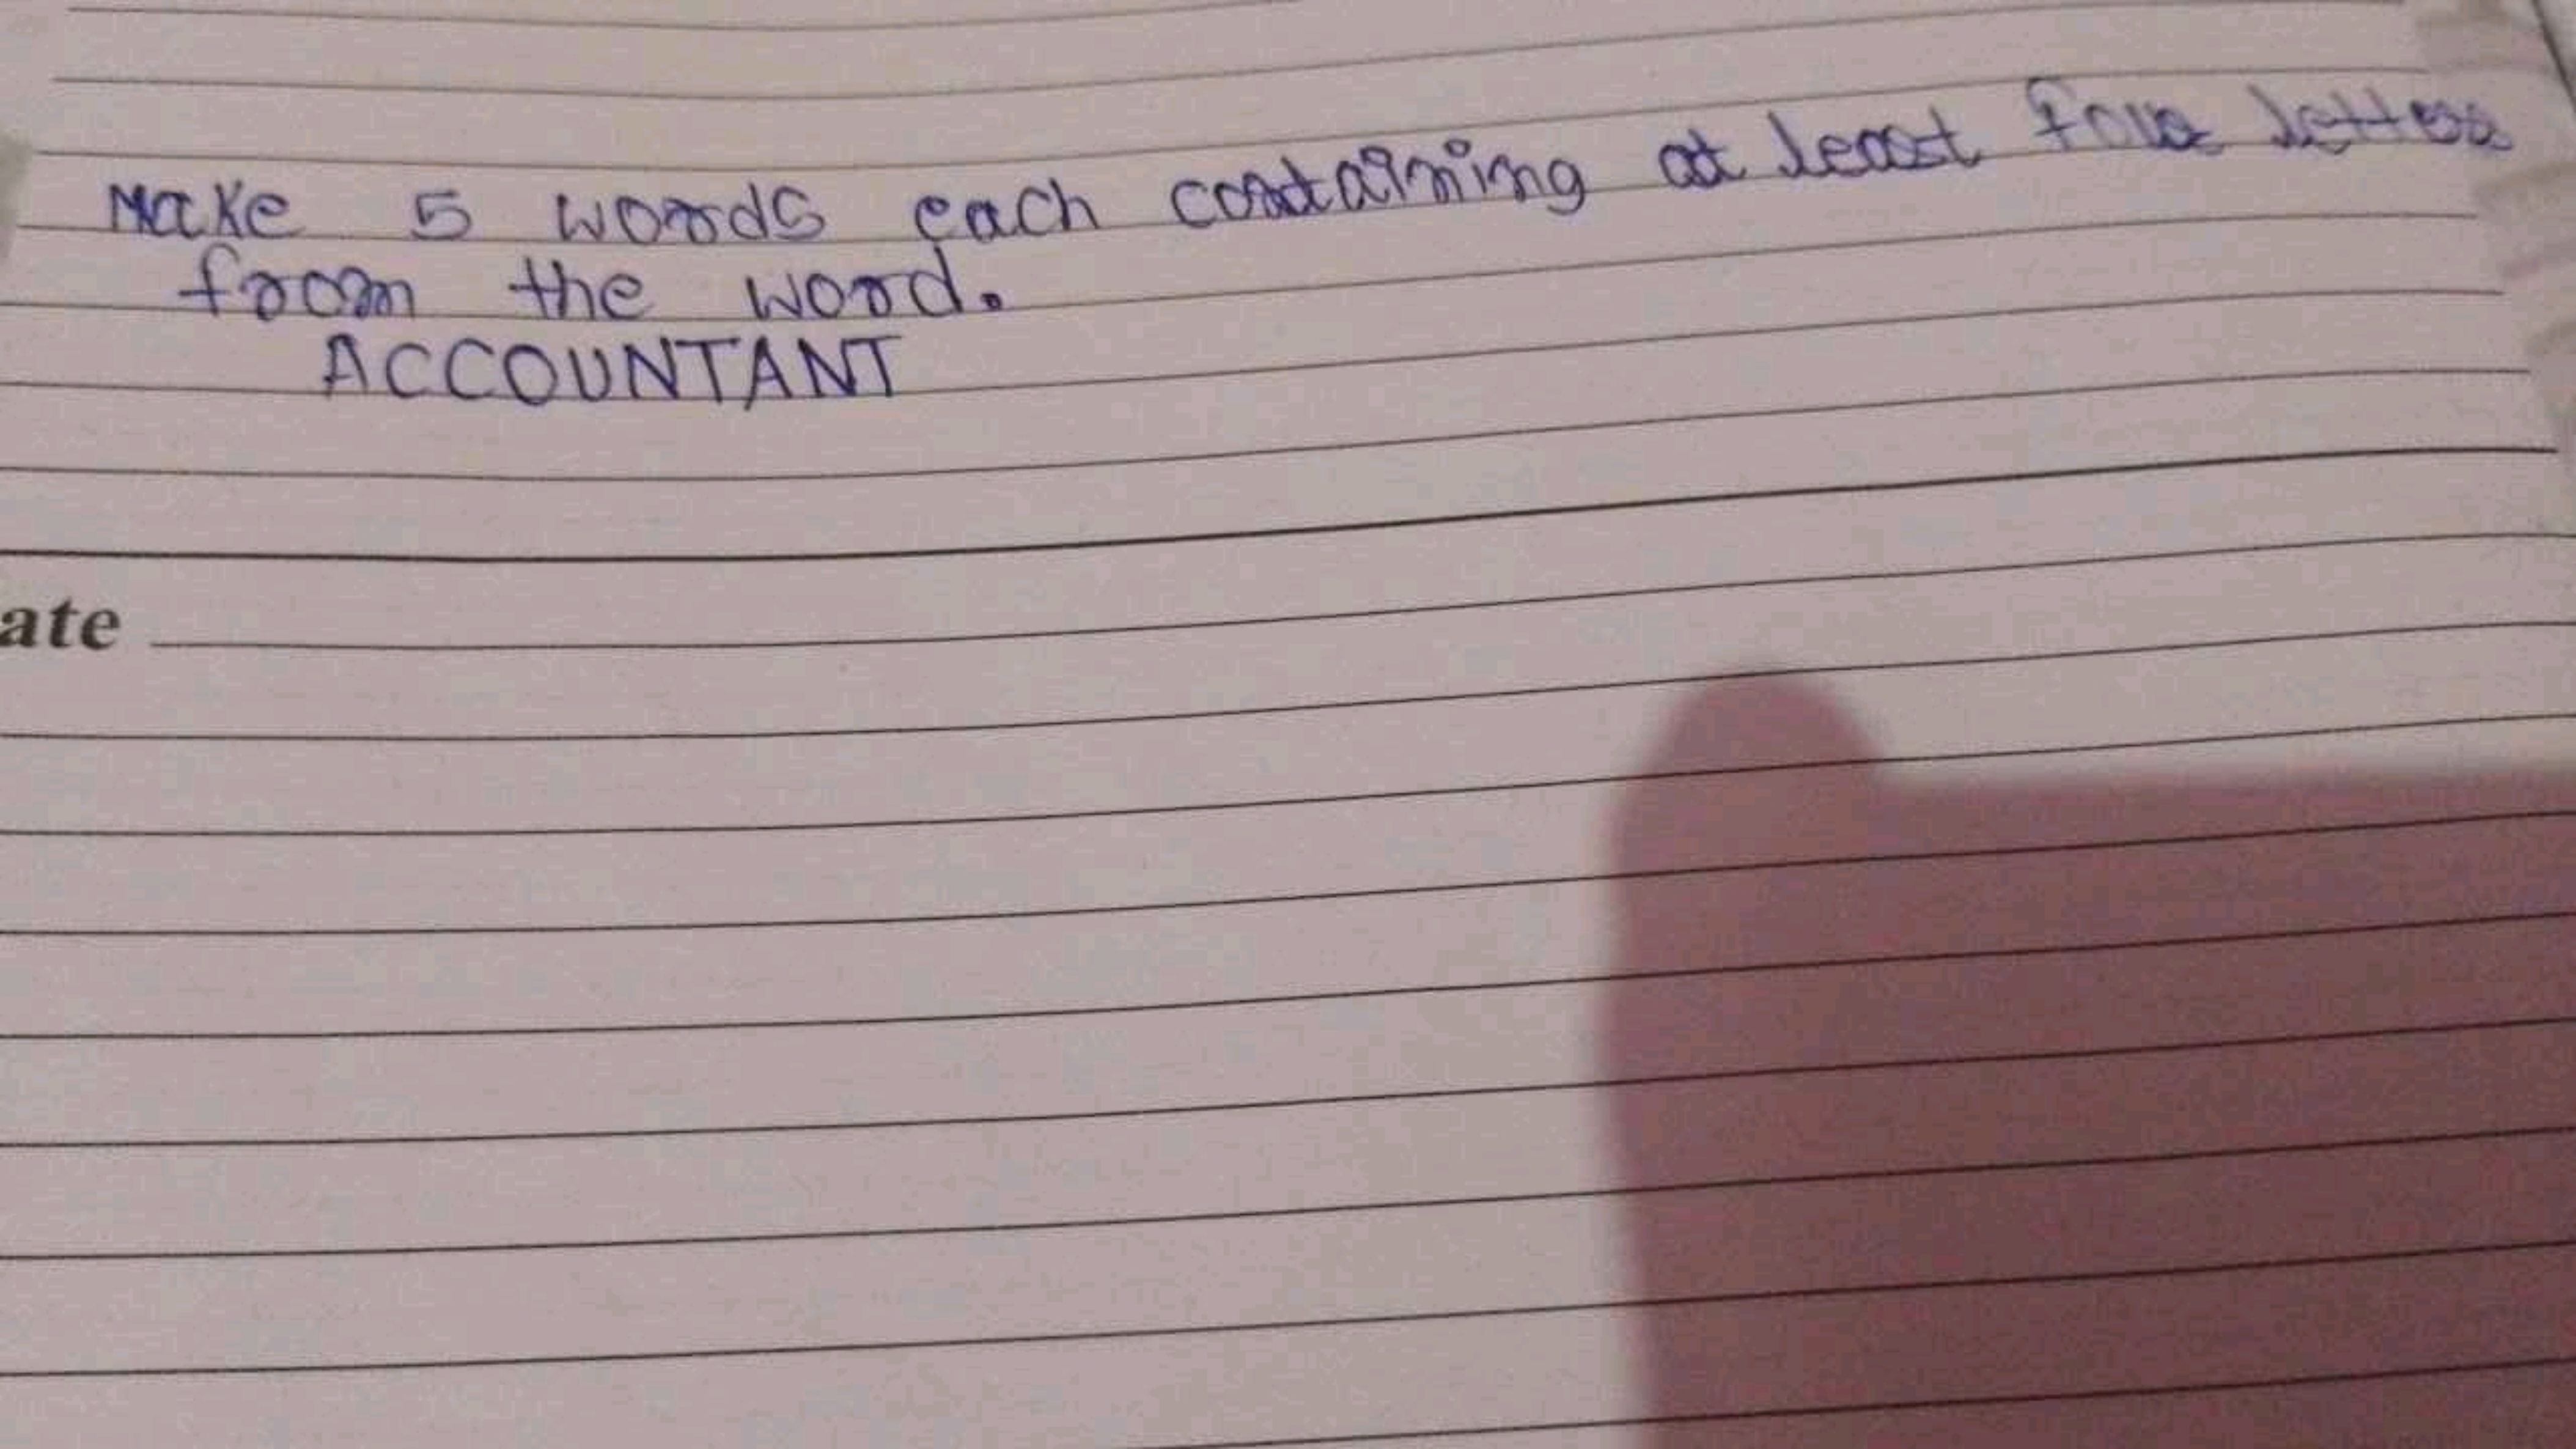 Make 5 words each containing at least four letters
from the word.
ACCOUNTANT
ate